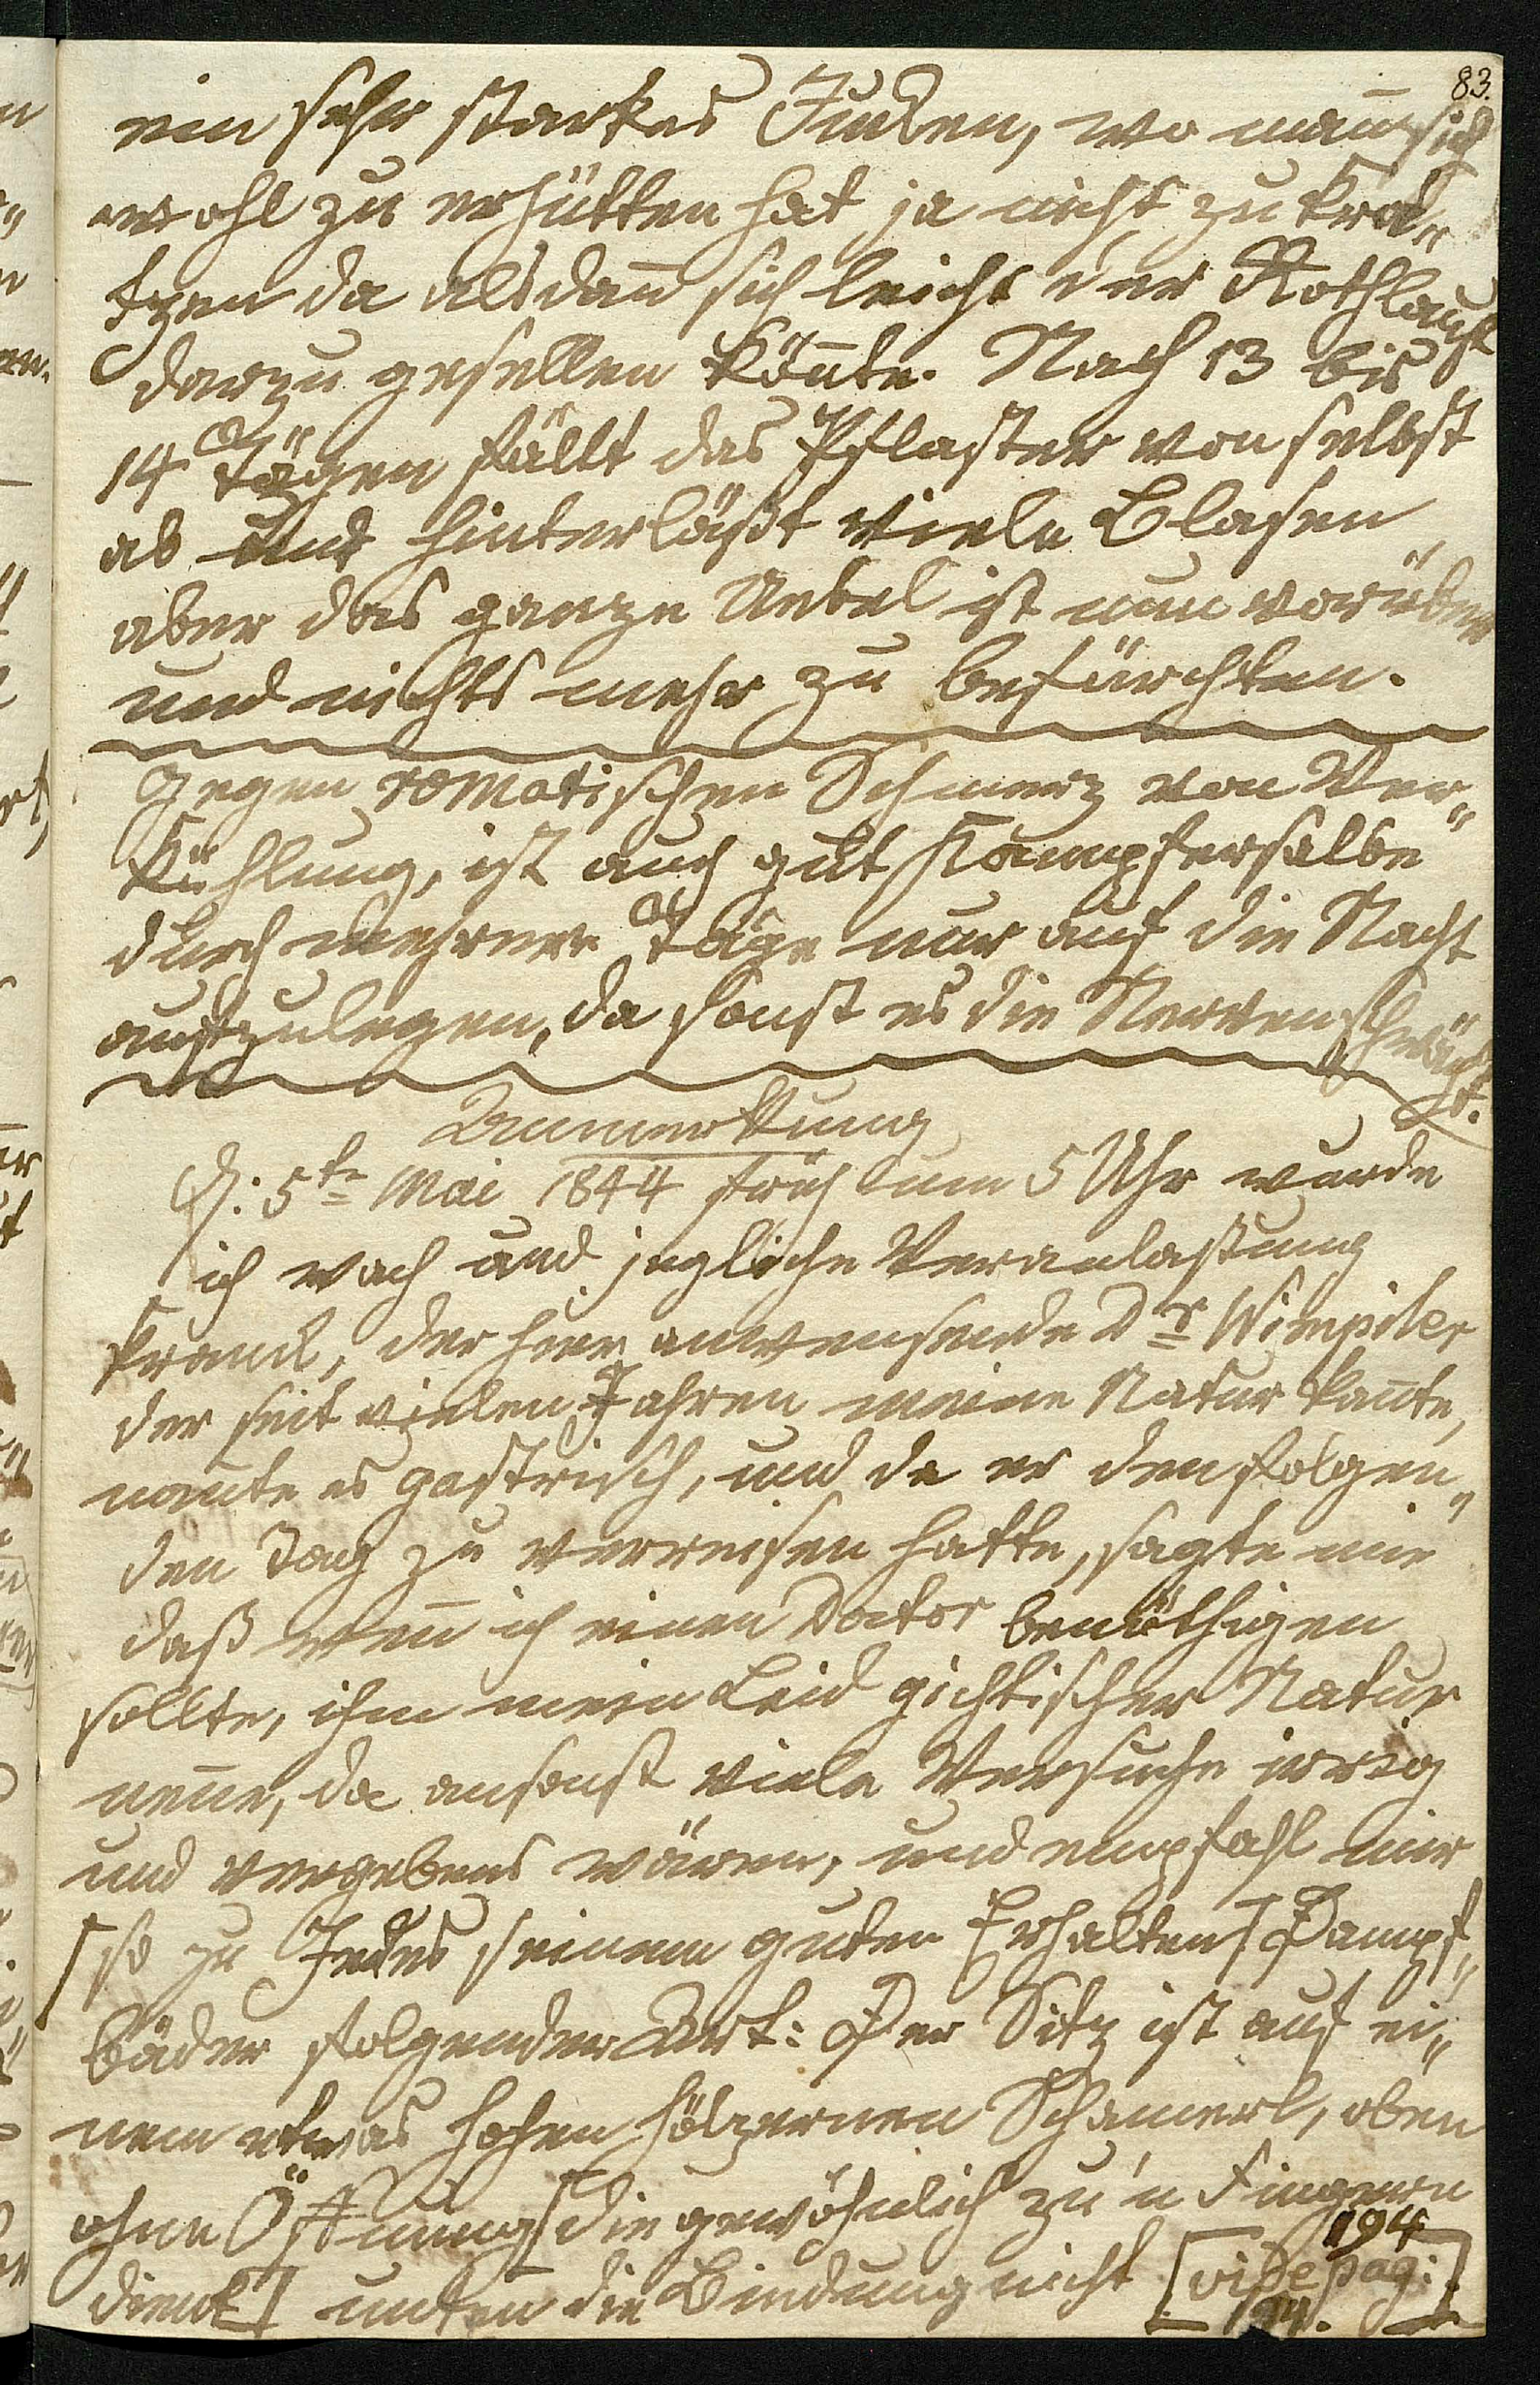 83.
ein sehr starkes Jucken, wo man̅ sich
wohl zu verhütten hat ja nicht zu kra„
tzen da alsdan̅ sich leicht der Rothlauf
darzu gesellen kön̅te. Nach 13 bis
14 Tägen fällt das Pflaster von selbst
ab und hinterläßt viele Blasen
aber das ganze Uebel ist nun vorüber
und nichts mehr zu befürchten.
Gegen romatischen Schmerz von Ver„
kühlung, ist auch gut Kampfersalbe
durch mehrere Täge nur auf die Nacht
aufzulegen, da sonst es die Nerven schwäch
t.
Anmerkung
D: 5te Mai 1844 früh um 5 Uhr wurde
ich wach und jegliche Veranlassung
krank, der hier anwesende Dr Wimpiler
der seit vielen Jahren meine Natur kan̅te,
nan̅te es gastrisch, und da er den folgen„
den Tag zu verreisen hatte, sagte mir
daß wen̅ ich einen Doctor benöthigen
sollte, ihm mein Leid gichtischer Natur
nen̅e, da ansonst viele Versuche irrig
und vergebens wären, und empfahl mir
[so zu Jedes seinem guten Erhalten] Dampf„
bäder folgender Art: Der Sitz ist auf ei„
nem etwas hohen hölzernen Schamerl, oben
ohne Öffnung [die gewöhnlich zu'n Fingern
dient] unten die Bindung nicht [vide pag:
194